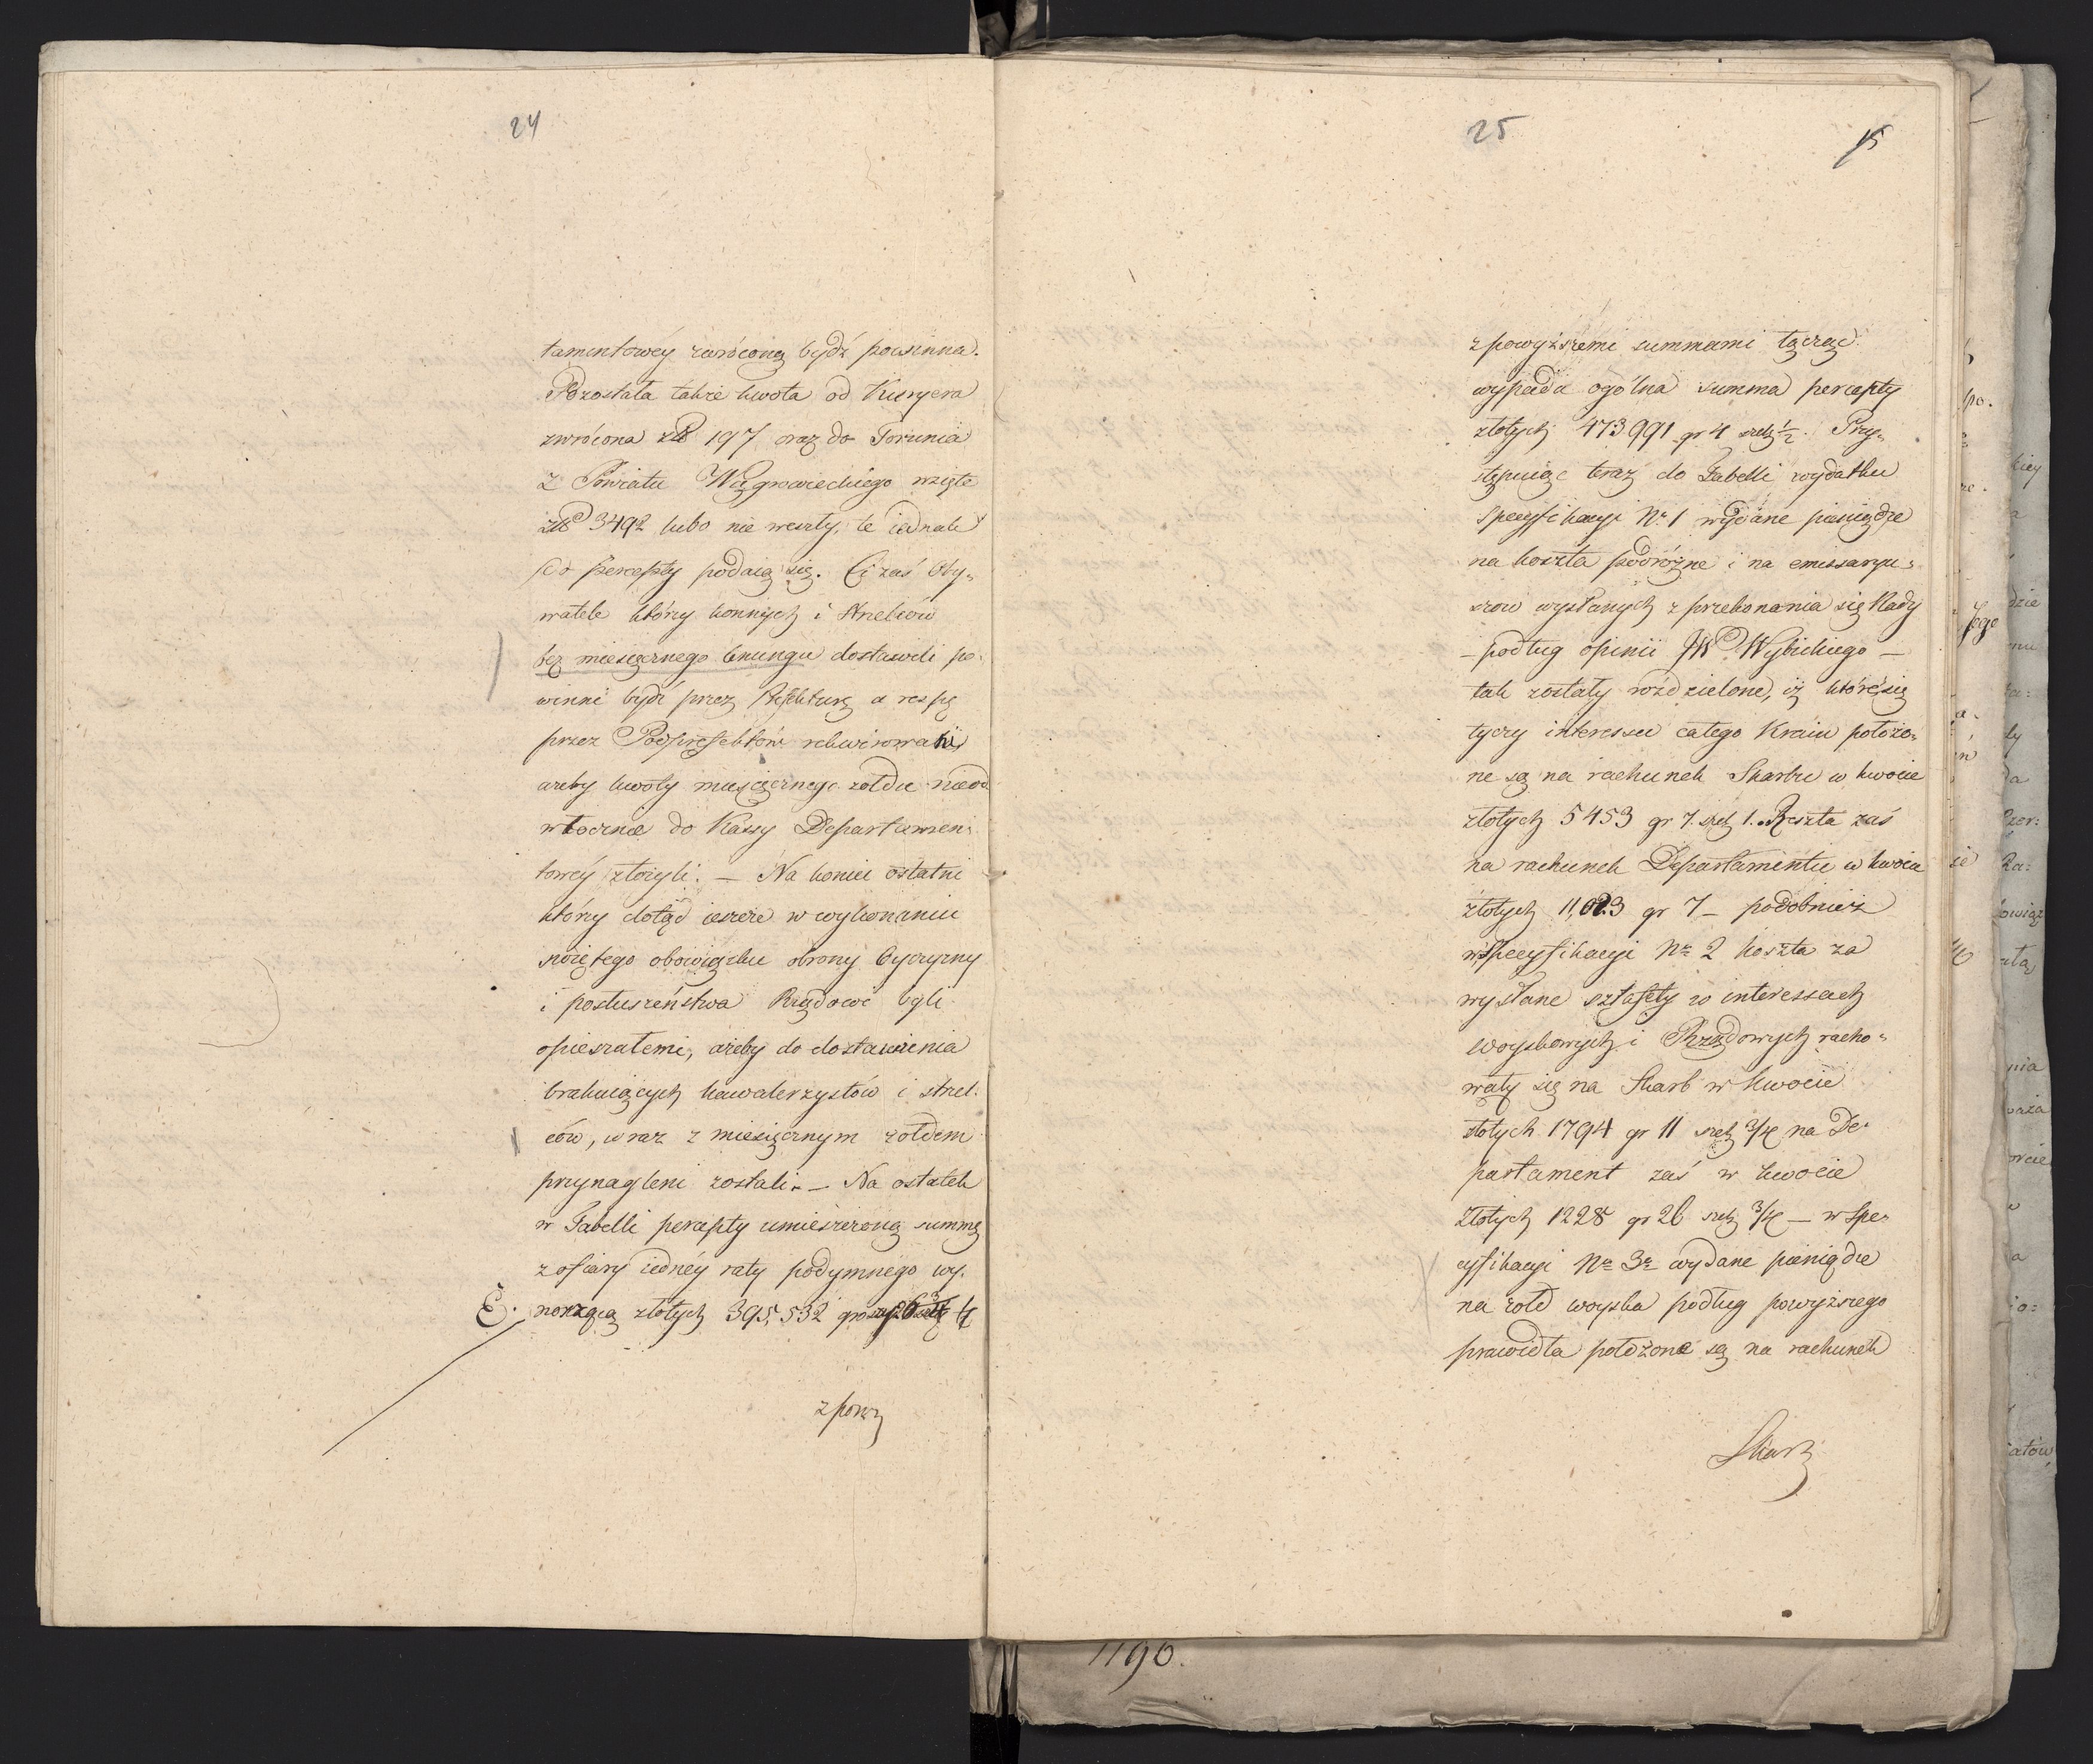 24
tamentowéy zwróconą bydź powinna.
Pozostała także kwota od Kuryera
zwrócona zł 197 oraz do Torunia
z Powiatu Wągrowieckiego wzięte
zł 3492 lubo nie weszły, te iednak
do percepty podaią się. Ci zaś Oby„
watele którzy konnych i strzelców
bez miesięcznego lenungu dostawili po„
winni bydź przez Prefekturę a resp.
przez Podprefektów rekwirowani,
ażeby kwoty miesięcznego żołdu nieod
włocznie do Kassy Departamen„
towéy złożyli. — Na koniec ostatni
którzy dotąd ieszcze w wykonaniu
świętego obowiązku obrony Oyczyzny
i posłuszeństwa Rządowi byli
opieszałemi, ażeby do dostawienia
brakuiących kawalerzystów i strzel„
ców, wraz z miesięcznym żołdem
przynagleni zostali. — Na ostatek
w Tabelli percepty umieszczoną summę
z ofiary iednéy raty podymnego wy„
E. noszącą złotych 395,532
z powy
25
15
z powyższemi summami łącząc
wypada ogólna summa percepty
złotych 473991 gr 4 szelą ½. Przy„
stępuiąc teraz do Tabelli wydatku
Specyfikacyi Nr. 1 wydane pieniądze
na koszta podróżne i na emissaryu„
szow wysłanych z przekonania się Rady
— podług opinii JW. Wybickiego —
tak zostały rozdzielone, iż które się
tyczy interessu całego Kraiu położo„
ne są na rachunek Skarbu w kwocie
złotych 5453 gr 7. szelą 1. Reszta zaś
na rachunek Departamentu w kwocie
złotych 11,023 gr 7 — podobnież
w Specyfikacyi Nr. 2 koszta za
wysłane sztafety w interessach
woyskowych i Rządowych racho„
wały się na Skarb w kwocie
złotych 1794 gr 11 szelą ¾ na De„
partament zaś w kwocie
złotych 1228 gr 26 szelą ¾ — w Spe„
cyfikacyi Nr. 3. wydane pieniądze
na żołd woyska podług powyższego
prawidła położone są na rachunek
Skarb
1190.